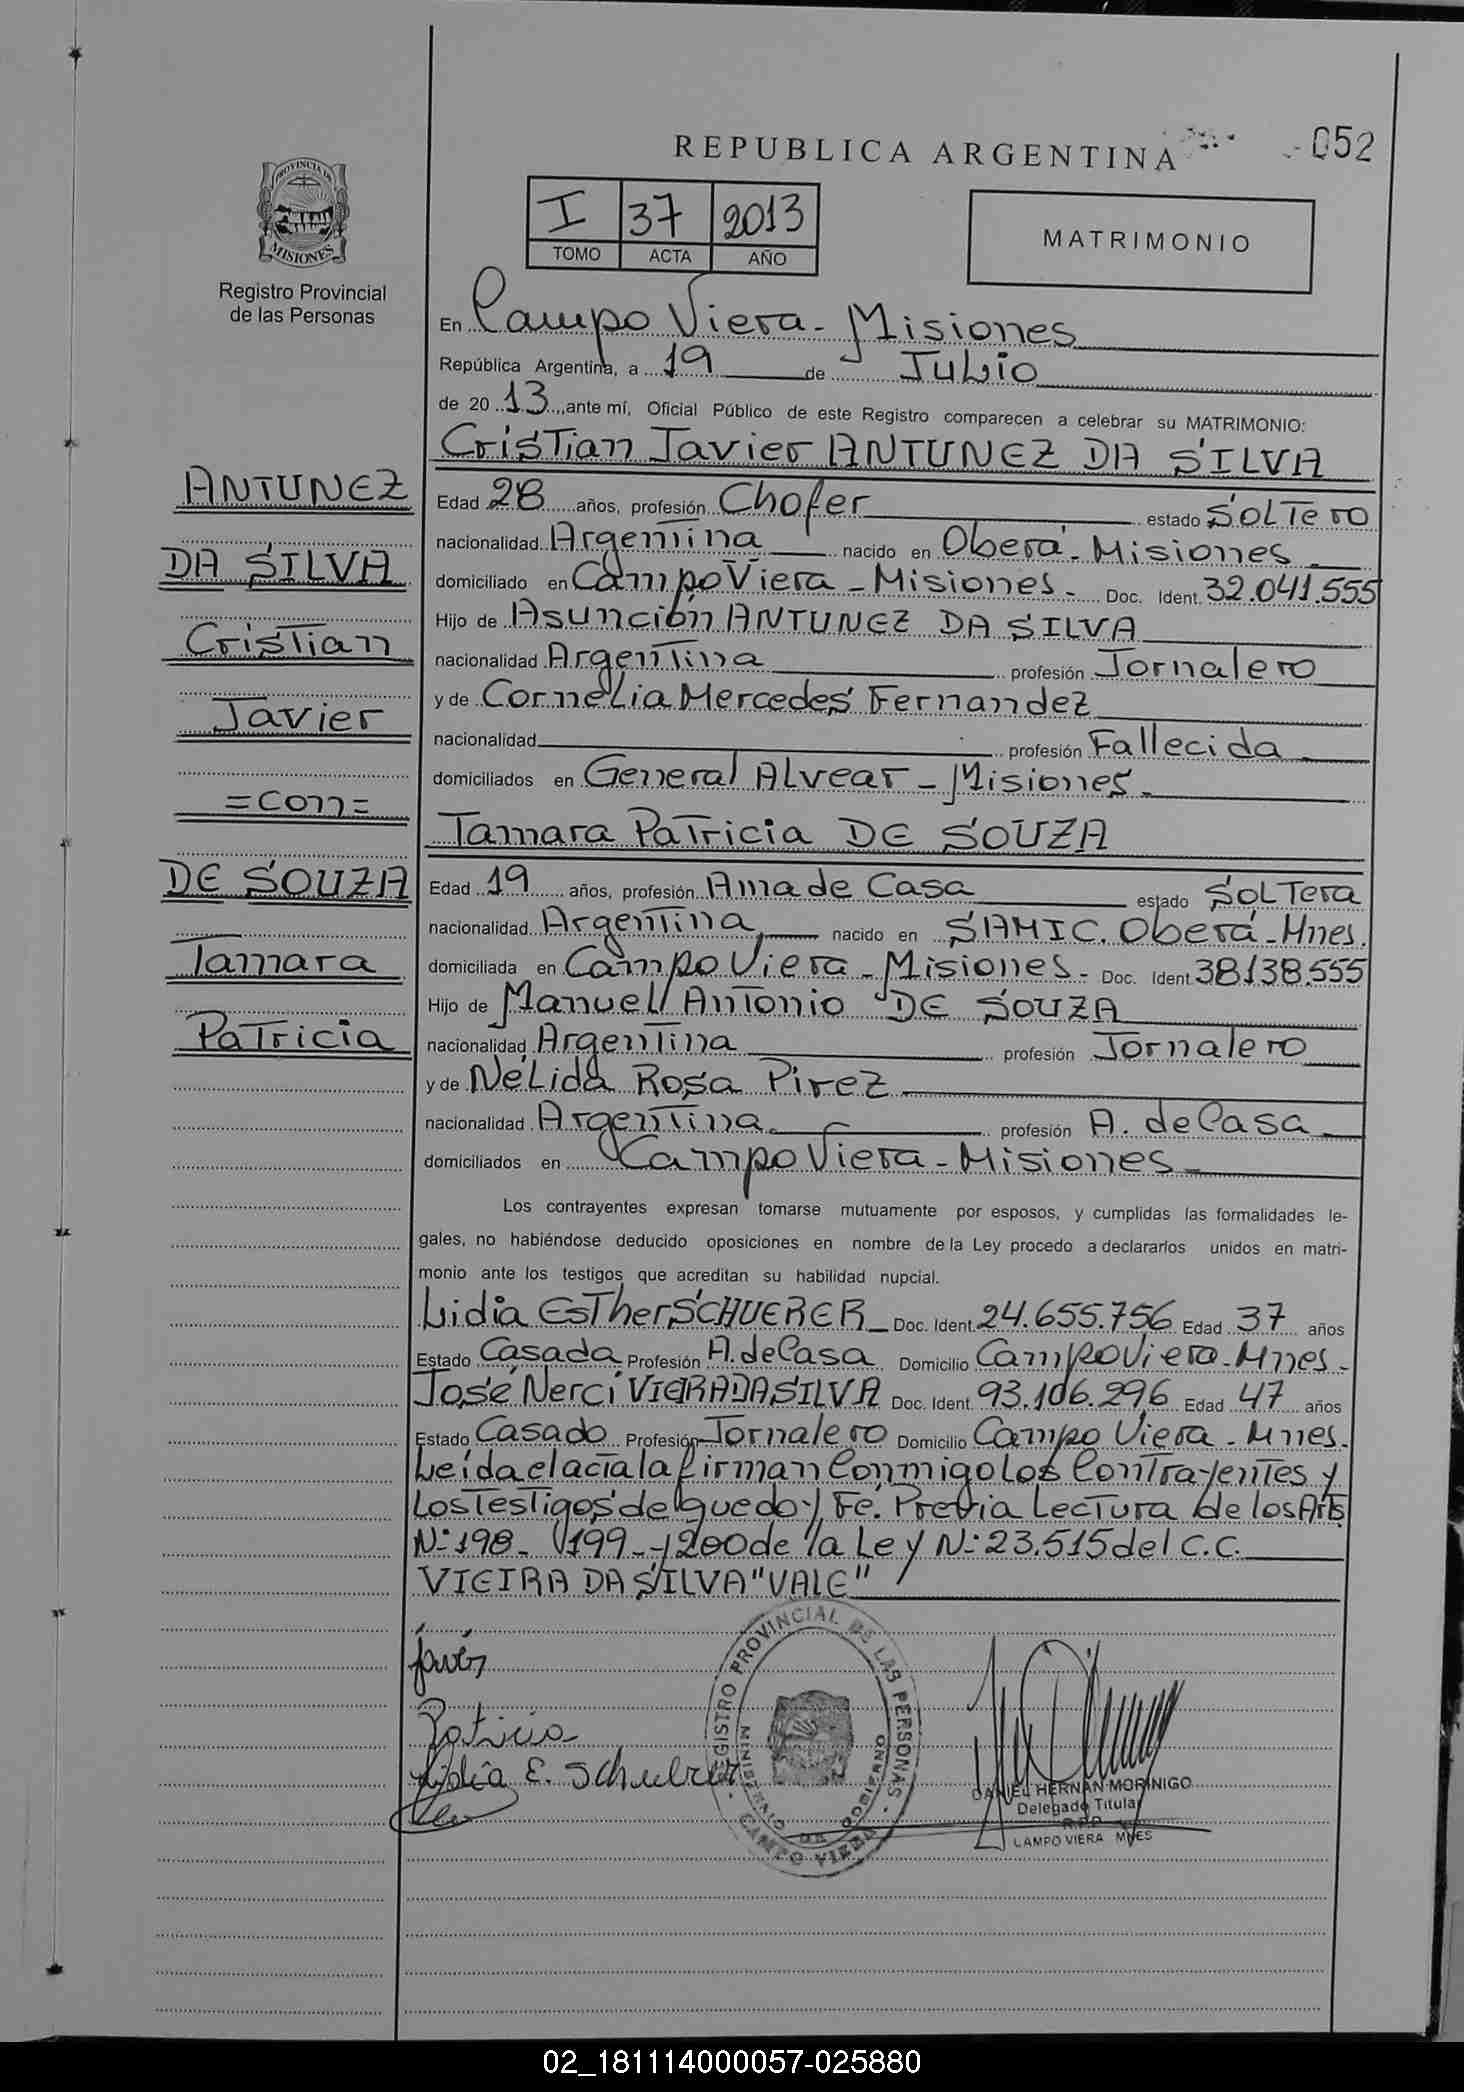 REPUBLICA ARGENTINA
052
PROVINCIA DE
MISIONES
Registro Provincial
de las Personas
I 37 2013
TOMO ACTA AÑO
MATRIMONIO
En Campo Viera - Misiones
República Argentina, a 19 de Julio
de 2013, ante mí, Oficial Público de este Registro comparecen a celebrar su MATRIMONIO:
Cristian Javier ANTUNEZ DA SILVA
Edad 28 años, profesión Chofer estado Soltero
nacionalidad Argentina nacido en Oberá - Misiones
domiciliado en Campo Viera - Misiones - Doc. Ident. 32.041.555
Hijo de Asunción ANTUNEZ DA SILVA
nacionalidad Argentina profesión Jornalero
y de Cornelia Mercedes Fernandez
nacionalidad profesión Fallecida
domiciliados en General Alvear - Misiones -
Tamara Patricia DE SOUZA
Edad 19 años, profesión Ama de Casa estado Soltera
nacionalidad Argentina nacido en SAMIC. Oberá - Mnes.
domiciliada en Campo Viera - Misiones - Doc. Ident 38138.555
Hijo de Manuel Antonio DE SOUZA
nacionalidad Argentina profesión Jornalero
y de Nélida Rosa Pirez
nacionalidad Argentina profesión A. de Casa
domiciliados en Campo Viera - Misiones
ANTUNEZ
DA SILVA
Cristian
Javier
=con=
DE SOUZA
Tamara
Patricia
Los contrayentes expresan tomarse mutuamente por esposos, y cumplidas las formalidades le-
gales, no habiéndose deducido oposiciones en nombre de la Ley procedo a declararlos unidos en matri-
monio ante los testigos que acreditan su habilidad nupcial.
Lidia Esther SCHUERER - Doc. Ident. 24.655.756 Edad 37 años
Estado Casada Profesión A. de Casa Domicilio Campo Viera - Mnes -
José Nerci VIERA DA SILVA Doc. Ident. 93.106.296 Edad 47 años
Estado Casado Profesión Jornalero Domicilio Campo Viera - Mnes.
Leída el acta la firman Conmigo los Contrayentes y
los Testigos de que doy Fé. Previa Lectura de los Arts
N: 198 - 199 - y 200 de la Ley N: 23.515 del C.C.
VIEIRA DA SILVA "VALE"
Javier
Patricia
Lidia E. Schuerer
REGISTRO PROVINCIAL DE LAS PERSONAS
MINISTERIO DE GOBIERNO
CAMPO VIERA
DANIEL HERNAN MORINIGO
Delegado Titular
R.P.P.
CAMPO VIERA MNES
02_181114000057-025880